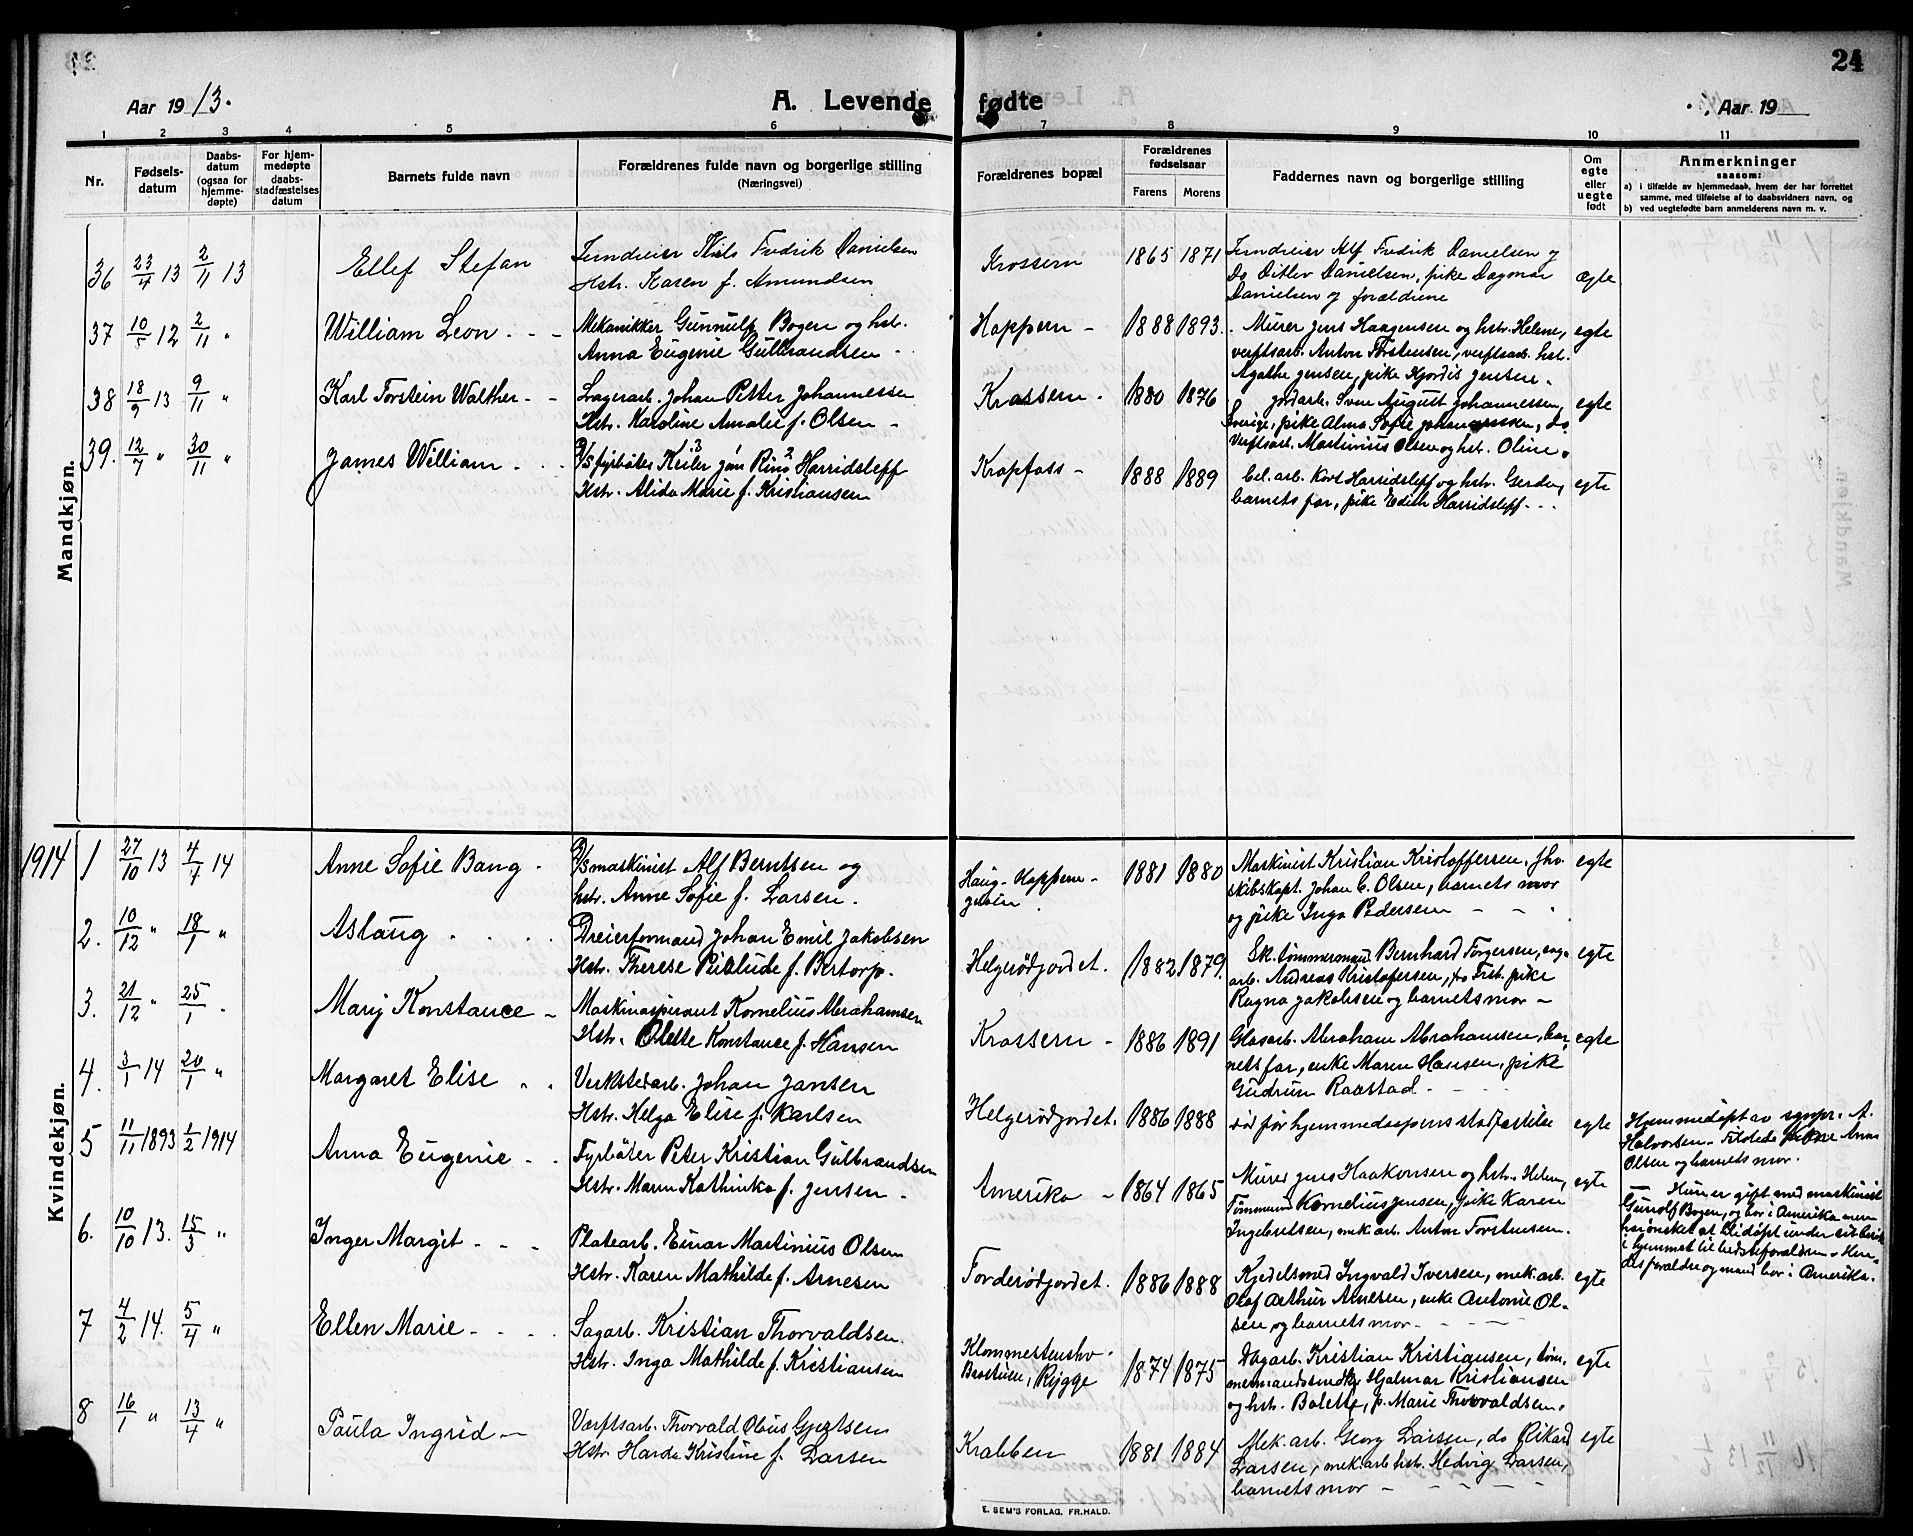 24
Aar 1913.
A. Levende fødte
Aar 19
1 2 3 4 5 6 7 8 9 10 11
Nr.
Fødsels-
datum
Daabs-
datum
(ogsaa for
hjemme-
døpte)
For hjem-
medøpte
daabs-
stadfæstelses
datum
Barnets fulde navn
Forældrenes fulde navn og borgerlige stilling
(Næringsvei)
Forældrenes bopæl
Forældrenes
fødselsaar
Farens Morens
Faddernes navn og borgerlige stilling
Om
egte
eller
uegte
født
Anmerkninger
saasom:
a) i tilfælde av hjemmedaab, hvem der har forrettet
samme, med tilføielse av to daabsvidners navn, og
b) ved uegtefødte barn anmelderens navn m. v.
Mandkjøn.
36 23/4 13 2/11 13 Ellef Stefan
Jerndreier Nils Fredrik Danielsen
Hstr. Karen f. Amundsen
Krossern 1865 1871
Jerndreier Alf Fredrik Danielsen og
Do Ditlev Danielsen, pike Dagmar
Danielsen og forældrene
ægte
37 10/5 12 2/11 " William Leon
Mekanikker Gunnulf Bogen og hstr.
Anna Eugenie Gulbrandsen
Hoppern - 1888 1893.
Murer Jens Haagensen og hstr. Helene,
verftsarb. Anton Torstensen, verftsarb. hst.
Agathe Jensen, pike Hjørdis Jensen.
egte
38 18/9 13 9/11 " Karl Torstein Walther
Lagerarb. Johan Petter Johannessen
Hstr. Karoline Amalie f. Olsen -
Krossern - 1880 1876
Jordarb. Sven August Johannessen,
Sverige, pike Alma Sofie Johannessen, do
Verftsarb. Martinius Olsen og hst. Oline.
egte
39. 12/7 " 30/11 " James William
D/S fyrbøter Keiler Jan Rino Harridsleff
Hstr. Alida Marie f. Kristiansen
Kropfoss - 1888 1889
Cel. arb. Kort Harridsleff og hstr. Gerda,
barnets far, pike Edith Harridsleff
egte
Kvindekjøn.
1914 1 27/10 13 4/1 14 Anne Sofie Bang
D/S maskinist Alf Berntsen og
hstr. Anne Sofie f. Larsen.
Haug- Hoppern- 1881 1880
Maskinist Kristian Kristoffersen, fhv.
skibskapt. Johan C. Olsen, barnets mor
og pike Inga Pedersen
egte
2. 10/12 " 18/1 " Aslaug
Dreierformand Johan Emil Jakobsen
Hstr. Therese f. Bertorp.
Helgerødjordet. 1882 1879.
Sk. tømmermand Bernhard Torgersen, sag-
arb. Andreas Kristofersen, do Frst. pike
Ragna Jakobsen og barnets mor -
egte
3. 21/12 " 25/1 Mary Konstance -
Maskinaspirant Kornelius Abrahamsen
Hstr. Olette Konstance f. Hansen
Krossern - 1886 1891
Glasarb. Abraham Abrahamsen, bar-
nets far, enke Maren Hansen, pike
Gudrun Raastad
egte
4. 3/1 14 20/1 " Margaret Elise
Verkstedarb. Johan Jansen
Hstr. Helga Elise f. Karlsen
Helgerødjordet. 1886 1888
død før hjemmedaapens stadfæstelse
egte
Hjemmedøpt av sgnpr. A.
Halvorsen. Tilstede pikene Anna
Olsen og barnets mor.
5 11/11 1893 1/2 1914 Anna Eugenie
Fyrbøter Peter Kristian Gulbrandsen
Hstr. Maren Kathinka f. Jensen -
Amerika - 1864 1865
Murer Jens Haakonsen og hstr. Helene,
Tømmermd Kornelius Jensen, pike Karen
Ingebretsen, mek. arb. Anton Torstensen.
egte
Hun er gift med maskinist
Gunolf Bogen, og bor i Amerika men
har ønsket at bli døpt under sit besøk
i hjemmet til bedsteforældrene. Hen-
des forældre og mand bor i Amerika.
6. 10/10 13. 15/3 " Inger Margit
Platearb. Einar Martinius Olsen
Hstr. Karen Mathilde f. Arnesen
Torderødjordet. 1886 1888
Kjedelsmed Ingvald Iversen, mek. arb.
Olaf Arthur Arnesen, enke Antonie Ol-
sen og barnets mor.
egte
7 4/2 14. 5/4 " Ellen Marie
Sagarb. Kristian Thorvaldsen.
Hstr. Inga Mathilde f. Kristiansen
Klommestenshv.
Brostuen, Rygge 1874 1875
Dagarb. Kristian Kristiansen, tøm-
mermandssmed Hjalmar Kristiansen
og hst. Bolette, p. Marie Thorvaldsen.
egte
8 16/1 " 13/4 " Paula Ingrid -
Værftsarb. Thorvald Olaus Gjertsen
Hstr. Harda Kristine f. Larsen
Krabben 1881 1884
Mek. arb. Georg Larsen, do Rikard
Larsen, mek. arb. hst. Hedvig Larsen,
barnets mor -
egte
E. SEM'S FORLAG, FR.HALD.